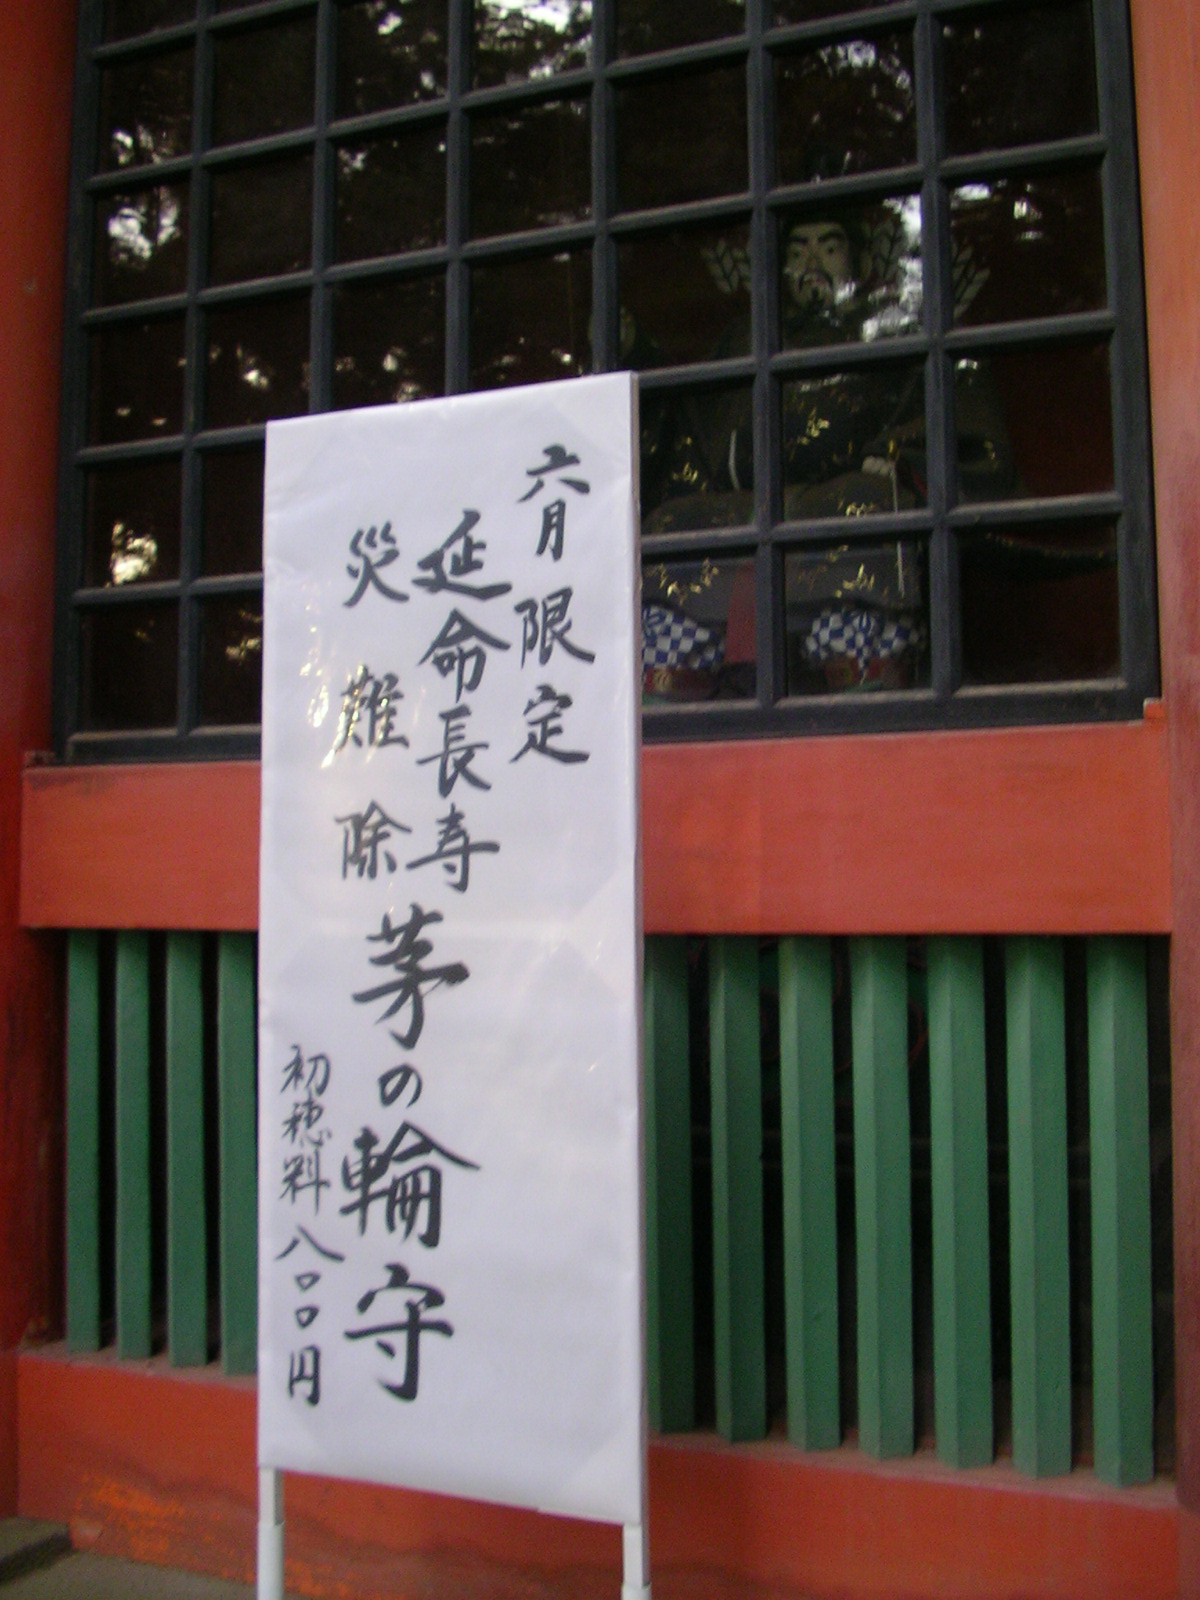 六月限定
延命長寿
災難除
茅の輪守
初穂料八〇〇円